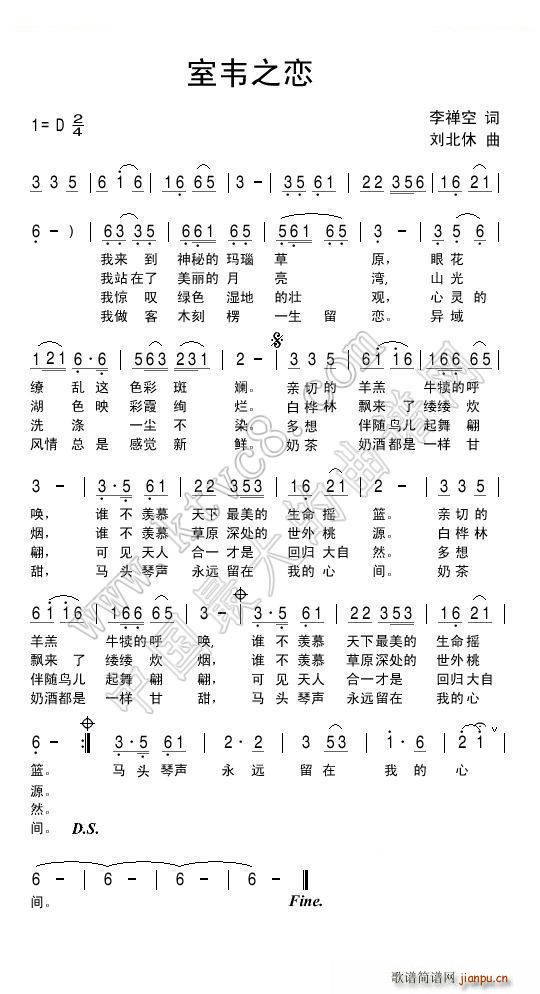 室韦之恋
1= D 2/4
李禅空 词
刘北休 曲
3 3 5 | 6 1 6 | 16 65 | 3 - | 35 61 | 22 356 | 16 21 |
6 - ) | 63 35 | 661 65 | 561 65 | 3 - | 3 5 6 |
我来到 神秘的玛瑙 草 原, 眼花
我站在了 美丽的月 亮 湾, 山光
我惊叹 绿色湿地的壮 观, 心灵的
我做客 木刻楞 一生留 恋。 异域
121 6·6 | 563 231 | 2 - | 3 3 5 | 61 16 | 166 65 |
缭乱这 色彩斑 斓。 亲切的 羊羔 牛犊的呼
湖色映 彩霞绚 烂。 白桦林 飘来了 缕缕炊
洗涤 一尘不 染。 多想 伴随鸟儿 起舞翩
风情总是 感觉新 鲜。 奶茶 奶酒都是 一样甘
3 - | 3·5 61 | 22 353 | 16 21 | 2 - | 3 3 5 |
唤, 谁不羡慕 天下最美的 生命摇 篮。 亲切的
烟, 谁不羡慕 草原深处的 世外桃 源。 白桦林
翩, 可见天人 合一才是 回归大自 然。 多想
甜, 马头琴声 永远留在 我的心 间。 奶茶
61 16 | 166 65 | 3 - | 3·5 61 | 22 353 | 16 21 |
羊羔 牛犊的呼 唤, 谁不羡慕 天下最美的 生命摇
飘来了 缕缕炊 烟, 谁不羡慕 草原深处的 世外桃
伴随鸟儿 起舞翩 翩, 可见天人 合一才是 回归大自
奶酒都是 一样甘 甜, 马头琴声 永远留在 我的心
6 - :| 3·5 61 | 2·2 | 3 53 | 1·6 | 2 1 | V
篮。 马头琴声 永远 留在 我的 心
源。
然。
间。 D.S.
6 - | 6 - | 6 - | 6 - |
间。 Fine.
www.ktvc8.com
中国最大的曲谱网
歌谱简谱网
jianpu.cn